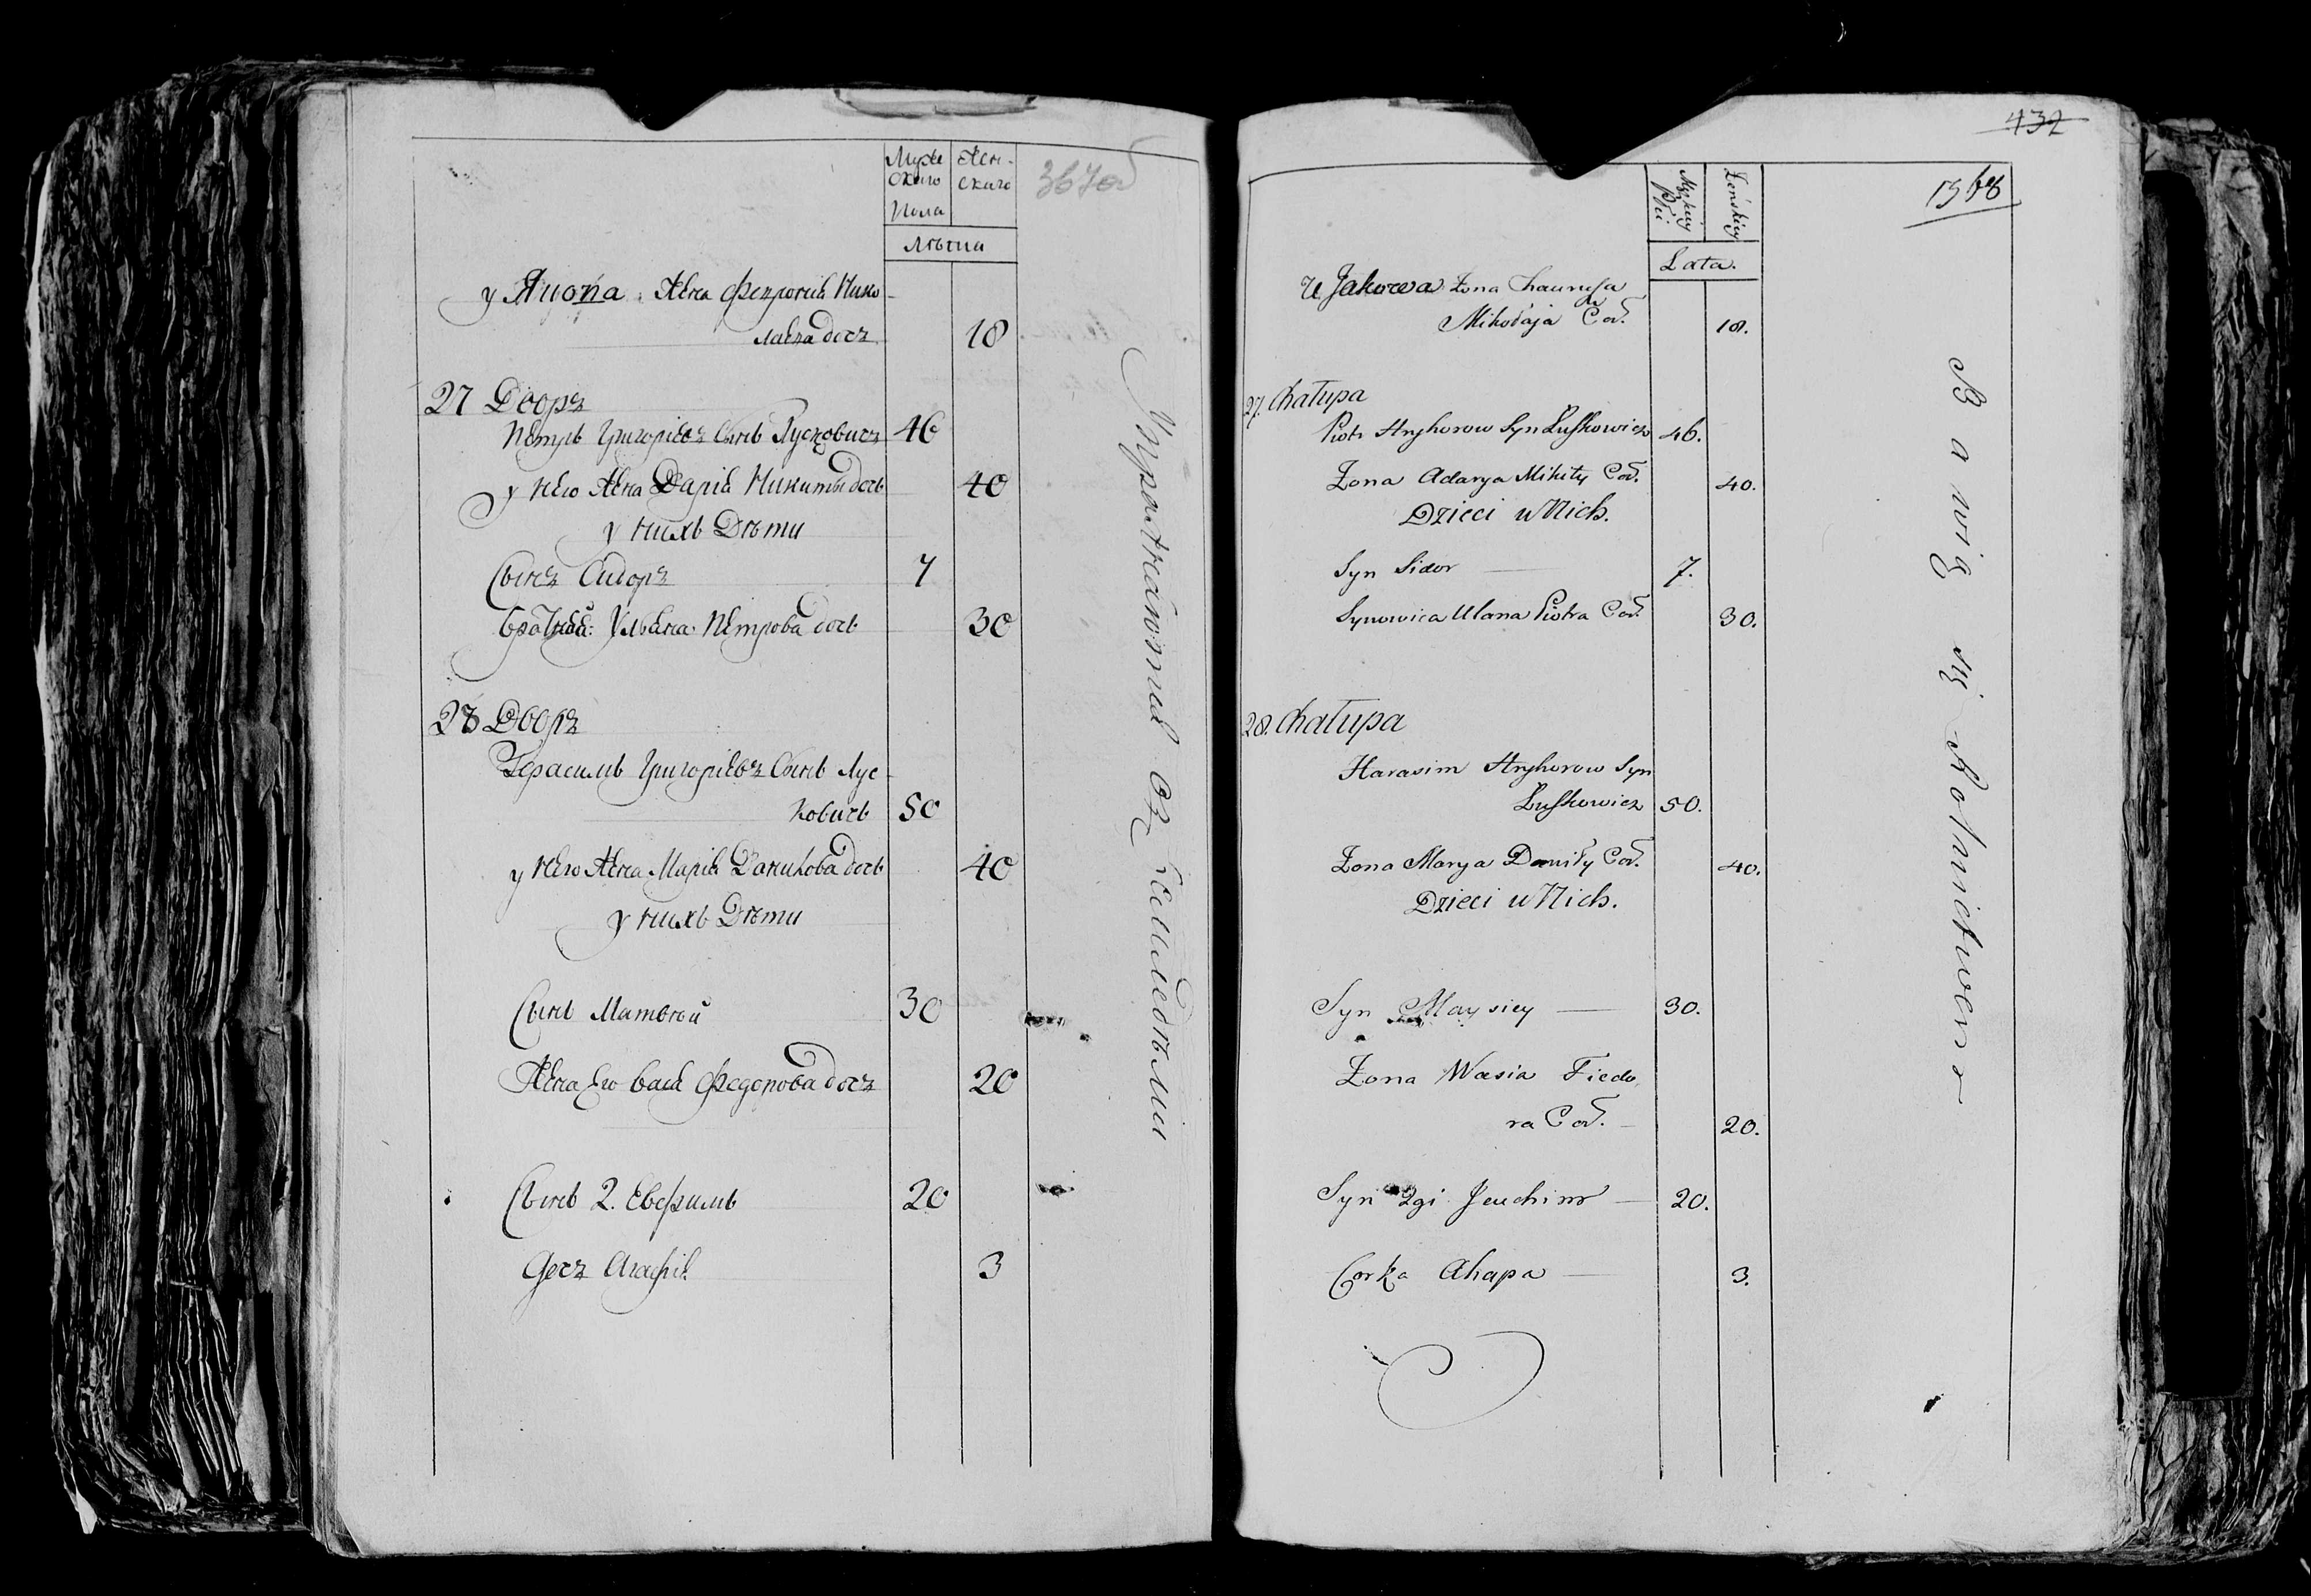 Муже Жен-
скаго скаго
Пола
Лѣта
367об
у Якова Жена Февронія Нико
лаева дочъ 18
27 Дворъ
Петръ Григорьевъ Сынъ Лусковичъ 46
у него Жена Дарія Никиты дочь 40
у нихъ Дѣти
Сынъ Сидоръ 7
Ульяна Петрова дочь 30
28 Дворъ
Герасимъ Григорьевъ Сынъ Лус
ковичъ 50
у него Жена Марія Данилова дочь 40
у нихъ Дѣти
Сынъ Матвѣй 30
Жена его Васа Федорова дочъ 20
Сынъ 2. Евфимъ 20
Дочъ Агафія 3
Упражняются въ Земледѣліи
432
368
Męzkiey Płci
Żeńskiey
Lata.
U Jakowa Żona
Mikołaja Cor. 18.
27. Chałupa
Piotr Hryhorow Syn Łuskowicz 46.
Żona Adarya Mikity Cor. 40.
Dzieci u Nich.
Syn Sidor 7.
Synowica Ulana Piotra Cor. 30.
28. Chałupa
Harasim Hryhorow Syn
Łuskowicz 50.
Żona Marya Daniły Cor. 40.
Dzieci u Nich.
Syn Maysiey 30.
Żona Wasia Fiedo
ra Cor. 20.
Syn 2gi Jeuchim 20.
Corka Ahapa 3.
Bawią się Rolnictwem